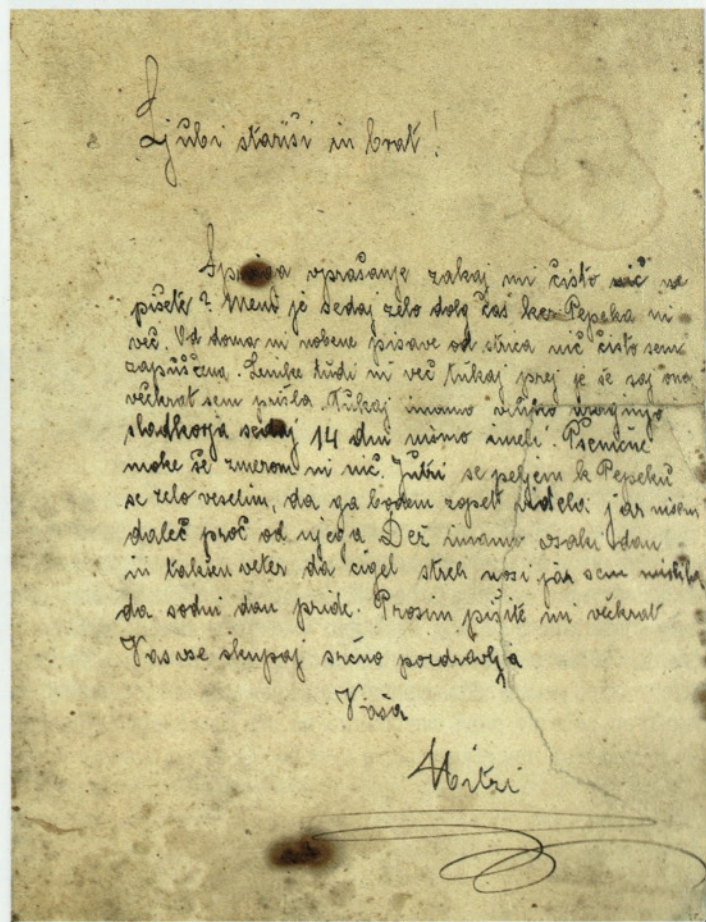 Ljubi stariši in brat!
vprašanje zakaj mi čisto nič ne
pišete? Meni je sedaj zelo dolg čas ker Pepeka ni
več. Od doma ni nobene pisave od strica nič čisto sem
zapuščena. Lenike tudi ni več tukaj prej je še saj ona
večkrat sem prišla. Tukaj imamo veliko
sladkorja sedaj 14 dni nismo imeli. Pšenične
moke še zmerom ni nič. Jutri se peljem k Pepeku
se zelo veselim, da ga bodem zopet videla jaz nisem
daleč proč od njega Dež imamo vsaki dan
in takien veter da cigel streh nosi jaz sem mislila,
da sodni dan pride. Prosim pišite mi večkrat
Vas vse skupaj srčno pozdravlja
Vaša
Mitzi